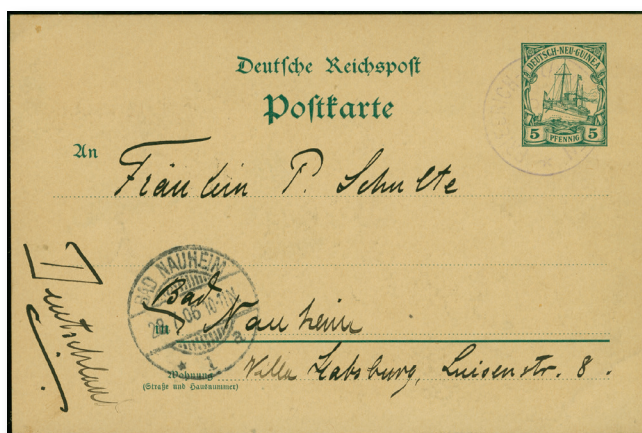 Deutsche Reichspost
Postkarte
DEUTSCH-NEU-GUINEA
5 PFENNIG 5
An
Fräulein P. Schulte
BAD NAUHEIM
06 10-11N
* 1 a
Bad
in Nauheim
Wohnung
(Straße und Hausnummer)
Villa Habsburg, Luisenstr. 8.
Deutschland